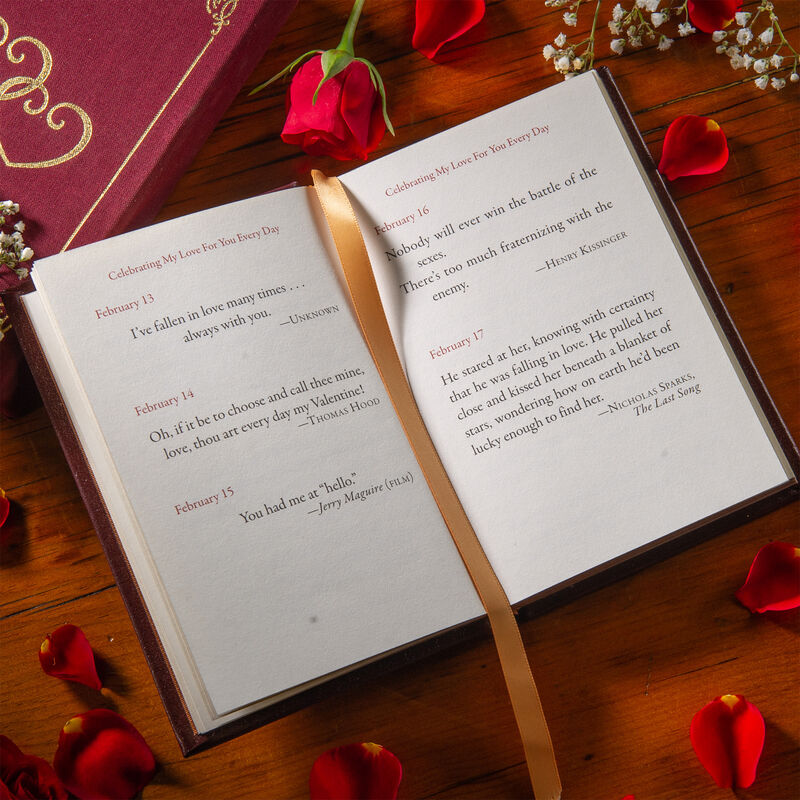 Celebrating My Love For You Every Day
February 13
I've fallen in love many times . . .
always with you.
—Unknown
February 14
Oh, if it be to choose and call thee mine,
love, thou art every day my Valentine!
—Thomas Hood
February 15
You had me at "hello."
—Jerry Maguire (film)
Celebrating My Love For You Every Day
February 16
Nobody will ever win the battle of the
sexes.
There's too much fraternizing with the
enemy.
—Henry Kissinger
February 17
He stared at her, knowing with certainty
that he was falling in love. He pulled her
close and kissed her beneath a blanket of
stars, wondering how on earth he'd been
lucky enough to find her.
—Nicholas Sparks,
The Last Song